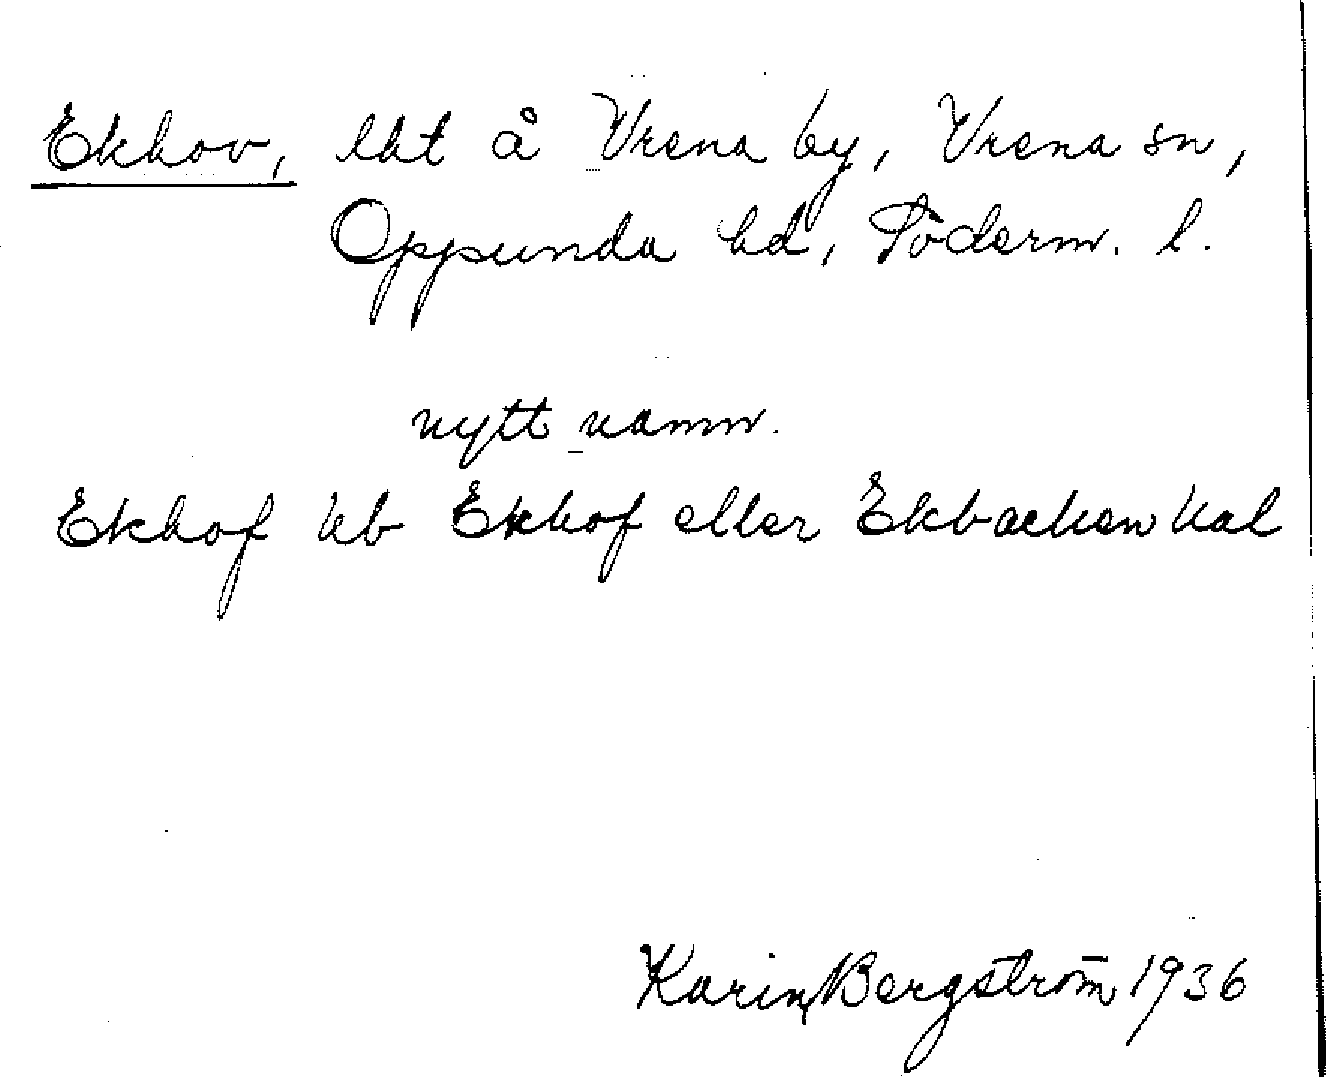 Ekhov, lht å Vrena by, Vrena sn,
Oppunda hd, Söderm. l.
nytt namn.
Ekhof hb Ekhof eller Ekbacken kal
Karin Bergström 1936